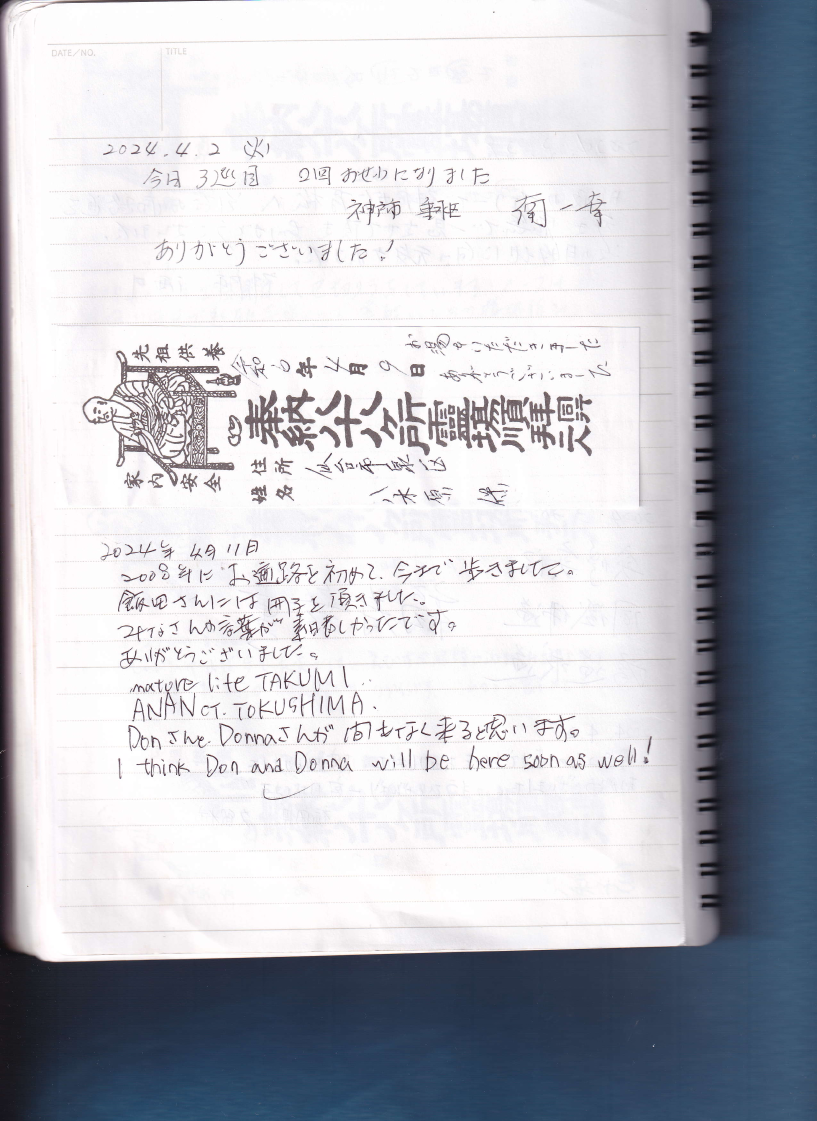 DATE/NO.
TITLE
2024.4.2 火
今日 3巡目 2回 おせわになりました
神戸市 東灘区 南 一幸
ありがとうございました!
先祖供養
家内安全
令和6年4月9日
奉納八十八ヶ所霊場順拝同行二人
お湯をいただきました
ありがとうございました
住所 仙台市泉区
姓名 八木
2024年 4月 11日
2008年に お遍路を初めて、今まで 歩きました。
飯田さんには 冊子を 頂きました。
みなさんの言葉が 素晴しかったです。
ありがとうございました。
nature lite TAKUMI
ANAN CT. TOKUSHIMA.
Donさんと Donnaさんが 間もなく 来ると思います。
I think Don and Donna will be here soon as well!